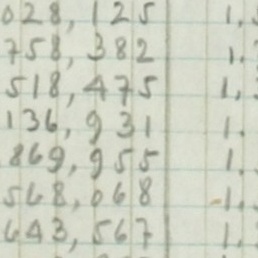 028,125 1.
758,382 1.
518,475 1.
136,931 1.
869,955 1.
568,068 1.
643,567 1.